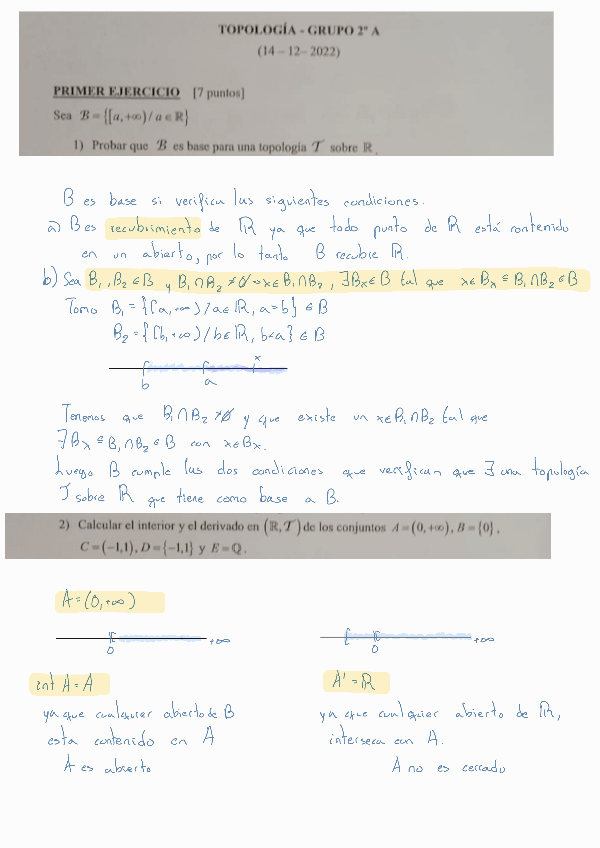 TOPOLOGÍA - GRUPO 2º A
(14 – 12– 2022)
PRIMER EJERCICIO [7 puntos]
Sea ℬ = {[a,+∞) / a ∈ ℝ}
1) Probar que ℬ es base para una topología 𝒯 sobre ℝ.
B es base si verifica las siguientes condiciones.
a) B es recubrimiento de ℝ ya que todo punto de ℝ está contenido
en un abierto, por lo tanto B recubre ℝ.
b) Sea B₁, B₂ ∈ B y B₁ ∩ B₂ ≠ ∅ ⇒ x ∈ B₁ ∩ B₂, ∃ Bx ∈ B tal que x ∈ Bx ⊆ B₁ ∩ B₂ ∈ B
Tomo B₁ = {[a,+∞) / a ∈ ℝ, a > b} ∈ B
B₂ = {[b,+∞) / b ∈ ℝ, b < a} ∈ B
x
b a
Tenemos que B₁ ∩ B₂ ≠ ∅ y que existe un x ∈ B₁ ∩ B₂ tal que
∃ Bx ⊆ B₁ ∩ B₂ ∈ B con x ∈ Bx.
Luego B cumple las dos condiciones que verifican que ∃ una topología
T sobre ℝ que tiene como base a B.
2) Calcular el interior y el derivado en (ℝ,𝒯) de los conjuntos A = (0,+∞), B = {0},
C = (−1,1), D = {−1,1} y E = ℚ.
A = (0,+∞)
0 +∞
0 +∞
int A = A
A' = ℝ
ya que cualquier abierto de B
esta contenido en A
A es abierto
ya que cualquier abierto de ℝ,
interseca con A.
A no es cerrado